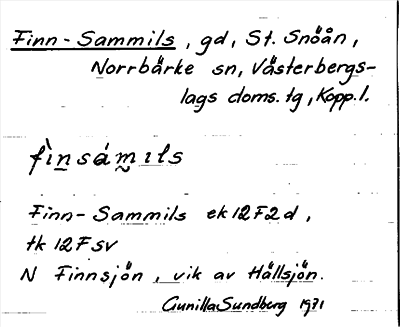 Finn-Sammils, gd, St. Snöån,
Norrbärke sn, Västerbergs-
lags doms. tg, Kopp. l.
fìn̲sám̰ıls
Finn-Sammils ek 12F2d,
tk 12F sv
N Finnsjön, vik av Hällsjön.
Gunilla Sundberg 1971